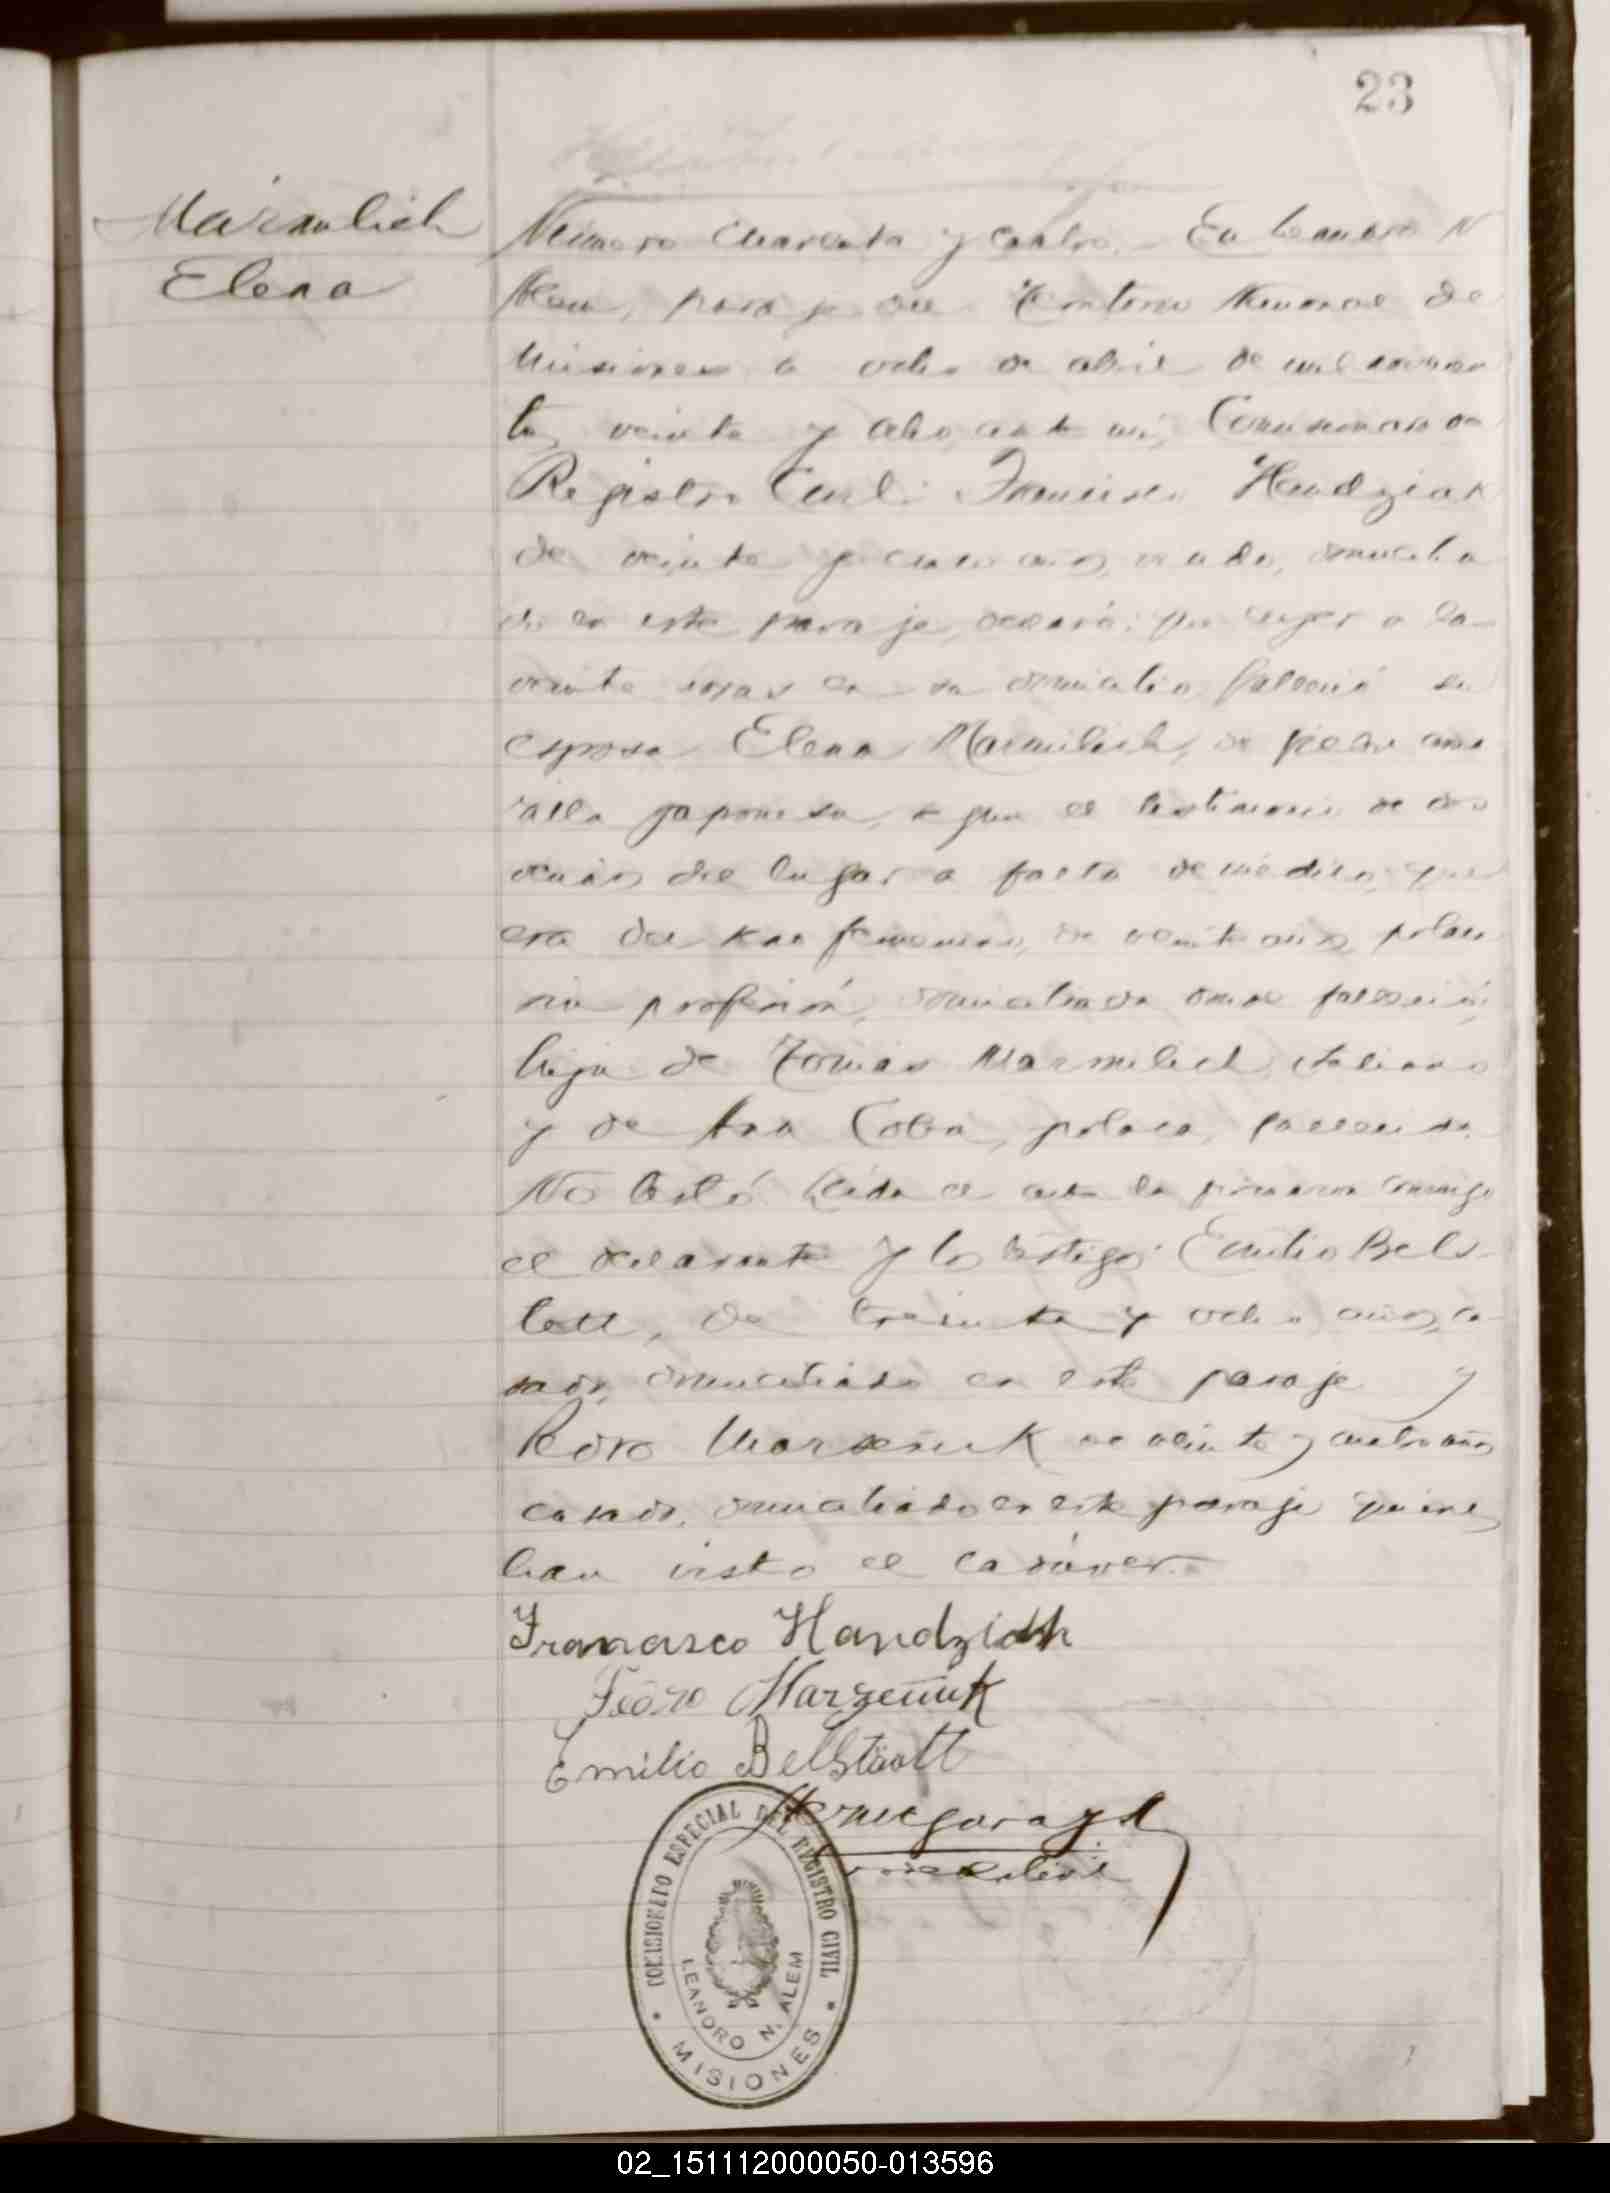 23
Marmilich
Elena
Número Cuarenta y cuatro.- En Leandro N
Alem, paraje del Territorio Nacional de
Misiones a ocho de abril de mil novecien
tos veinte y ocho, ante mi, Comisionado
Registro Civil: Francisco Handziak
de veinte y cinco años, viudo, domicilia
do en este paraje, declaró: que ayer a las
veinte horas en su domicilio falleció su
esposa Elena Marmilich, de fiebre ama
rilla japonesa, segun el testimonio de dos
vecinos del lugar a falta de médico, que
era del sexo femenino, de veinte años, polaca
sin profesión, domiciliada donde falleció,
hija de Tomás Marmilich, italiano
y de Ana Coba, polaca, fallecida.
No testó. Leida el acta la firmaron conmigo
el declarante y los testigos: Emilio Bels-
tett, de treinta y ocho años, ca
sado, domiciliado en este paraje y
Pedro Marzeñuk de veinte y cuatro años
casado, domiciliado en este paraje quienes
han visto el cadáver.-
Francisco Handziak
Pedro Marzeñuk
Emilio Bellstäott
COMISIONADO ESPECIAL DEL REGISTRO CIVIL
LEANDRO N. ALEM
* MISIONES *
02_151112000050-013596